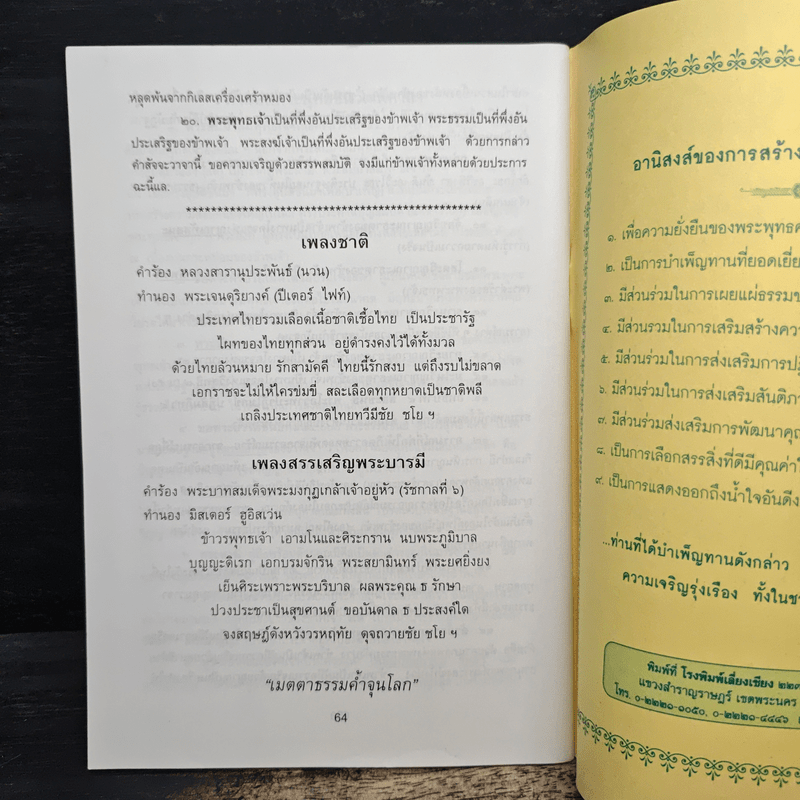 หลุดพ้นจากกิเลสเครื่องเศร้าหมอง
๒๐. พระพุทธเจ้าเป็นที่พึ่งอันประเสริฐของข้าพเจ้า พระธรรมเป็นที่พึ่งอัน
ประเสริฐของข้าพเจ้า พระสงฆ์เจ้าเป็นที่พึ่งอันประเสริฐของข้าพเจ้า ด้วยการกล่าว
คำสัจจะวาจานี้ ขอความเจริญด้วยสรรพสมบัติ จงมีแก่ข้าพเจ้าทั้งหลายด้วยประการ
ฉะนี้แล.
************************************************
เพลงชาติ
คำร้อง หลวงสารานุประพันธ์ (นวน)
ทำนอง พระเจนดุริยางค์ (ปีเตอร์ ไฟท์)
ประเทศไทยรวมเลือดเนื้อชาติเชื้อไทย เป็นประชารัฐ
ไผทของไทยทุกส่วน อยู่ดำรงคงไว้ได้ทั้งมวล
ด้วยไทยล้วนหมาย รักสามัคคี ไทยนี้รักสงบ แต่ถึงรบไม่ขลาด
เอกราชจะไม่ให้ใครข่มขี่ สละเลือดทุกหยาดเป็นชาติพลี
เถลิงประเทศชาติไทยทวีมีชัย ชโย ฯ
เพลงสรรเสริญพระบารมี
คำร้อง พระบาทสมเด็จพระมงกุฎเกล้าเจ้าอยู่หัว (รัชกาลที่ ๖)
ทำนอง มิสเตอร์ ฮูอิสเว่น
ข้าวรพุทธเจ้า เอามโนและศิระกราน นบพระภูมิบาล
บุญญะดิเรก เอกบรมจักริน พระสยามินทร์ พระยศยิ่งยง
เย็นศิระเพราะพระบริบาล ผลพระคุณ ธ รักษา
ปวงประชาเป็นสุขศานต์ ขอบันดาล ธ ประสงค์ใด
จงสฤษฎ์ดังหวังวรหฤทัย ดุจถวายชัย ชโย ฯ
"เมตตาธรรมค้ำจุนโลก"
64
อานิสงส์ของการสร้าง
๑. เพื่อความยั่งยืนของพระพุทธศ
๒. เป็นการบำเพ็ญทานที่ยอดเยี่ย
๓. มีส่วนร่วมในการเผยแผ่ธรรมข
๔. มีส่วนร่วมในการเสริมสร้างคว
๕. มีส่วนร่วมในการส่งเสริมการปฏ
๖. มีส่วนร่วมในการส่งเสริมสันติภ
๗. มีส่วนร่วมส่งเสริมการพัฒนาคุณ
๘. เป็นการเลือกสรรสิ่งที่ดีมีคุณค่า
๙. เป็นการแสดงออกถึงน้ำใจอันดีง
...ท่านที่ได้บำเพ็ญทานดังกล่าว
ความเจริญรุ่งเรือง ทั้งในช
พิมพ์ที่ โรงพิมพ์เลี่ยงเชียง ๒๒๓
แขวงสำราญราษฎร์ เขตพระนคร
โทร. ๐-๒๒๒๑-๑๐๕๐, ๐-๒๒๒๑-๔๔๔๖